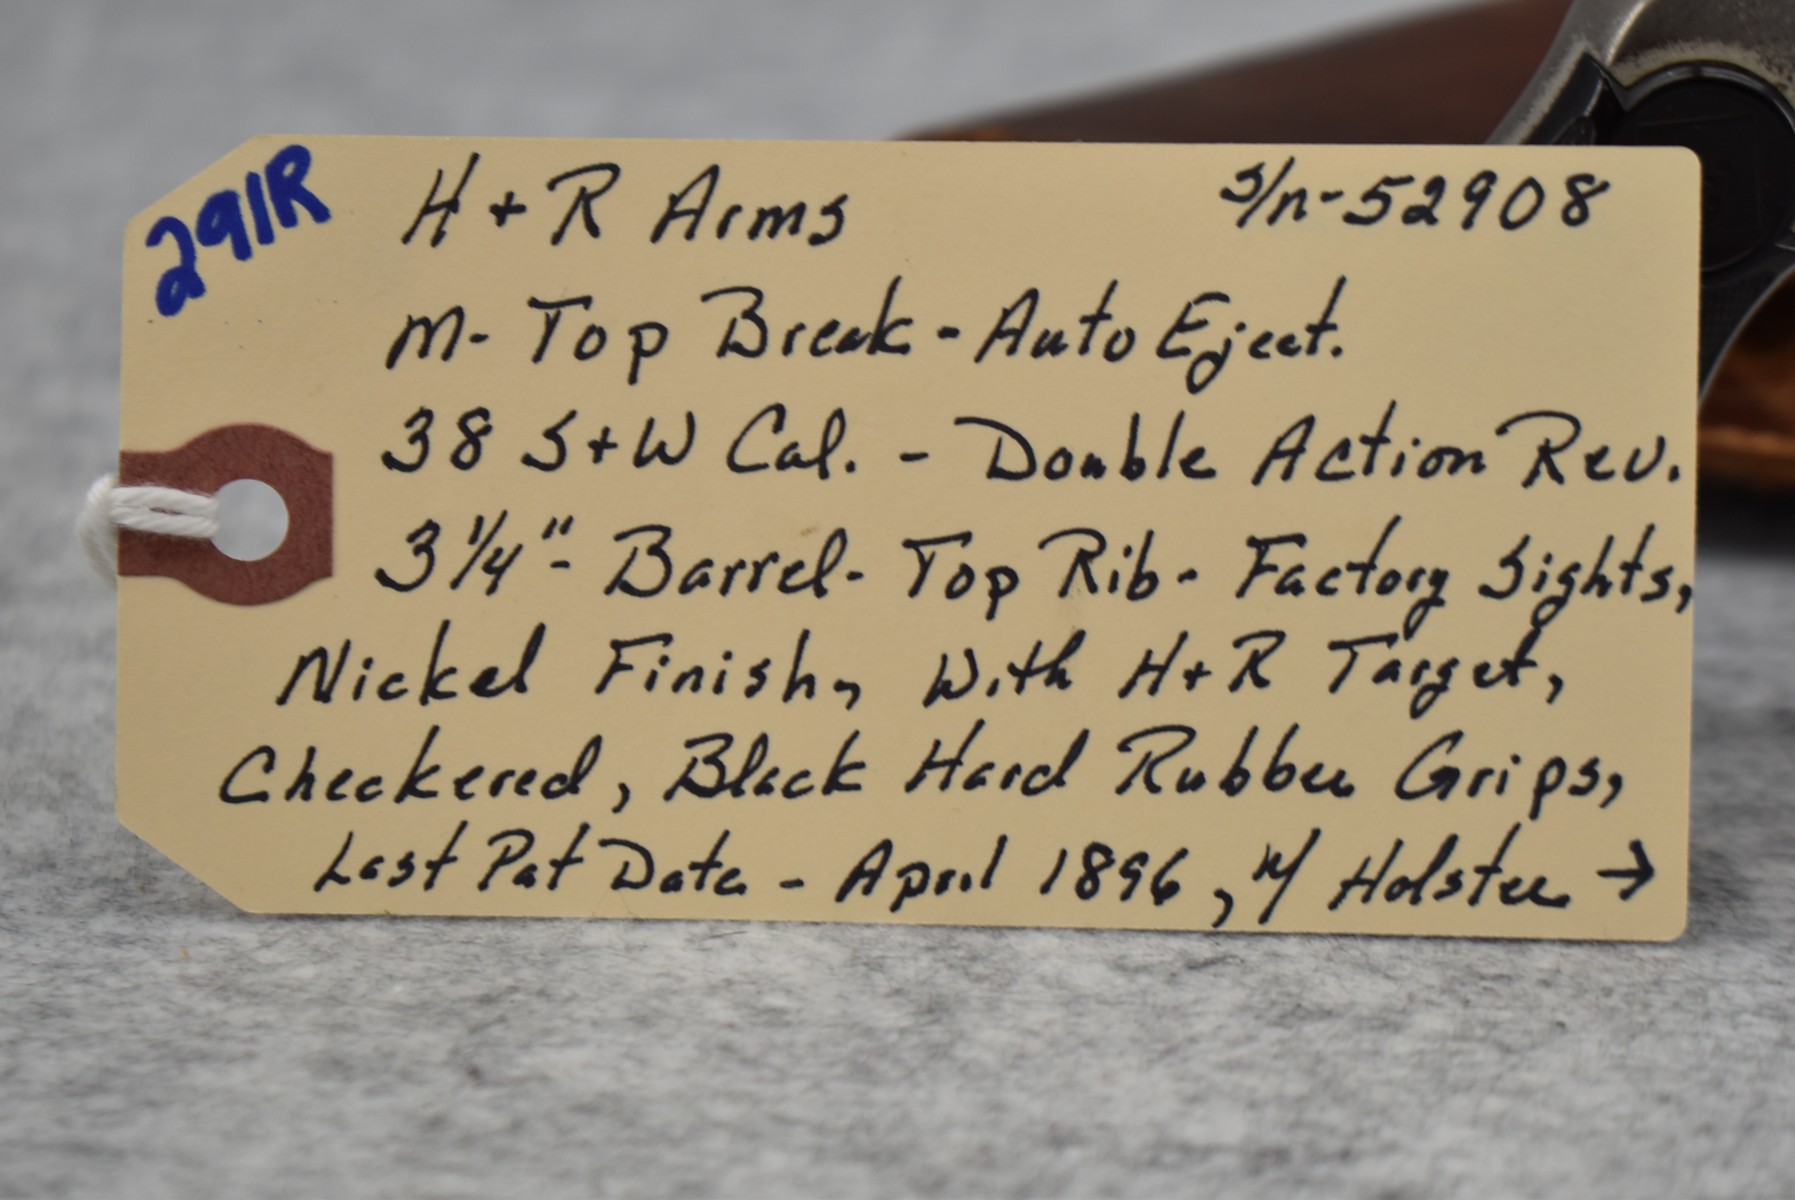 291R
H + R Arms s/n-52908
M- Top Break - Auto Eject.
38 S+W Cal. - Double Action Rev.
3 1/4"- Barrel- Top Rib- Factory Sights,
Nickel Finish, With H+R Target,
Checkered, Black Hard Rubber Grips,
Last Pat Date - April 1896, w/ Holster →